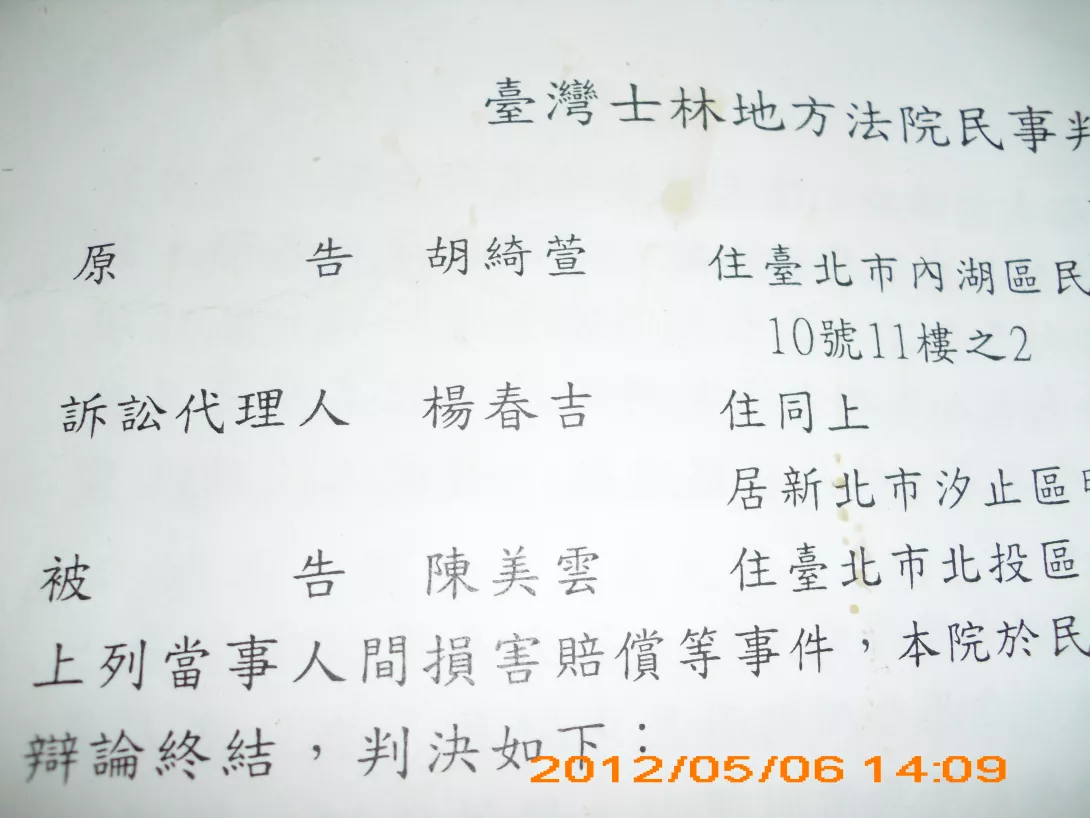 臺灣士林地方法院民事判
原告 胡綺萱 住臺北市內湖區民
10號11樓之2
訴訟代理人 楊春吉 住同上
居新北市汐止區
被告 陳美雲 住臺北市北投區
上列當事人間損害賠償等事件，本院於民
辯論終結，判決如下：
2012/05/06 14:09